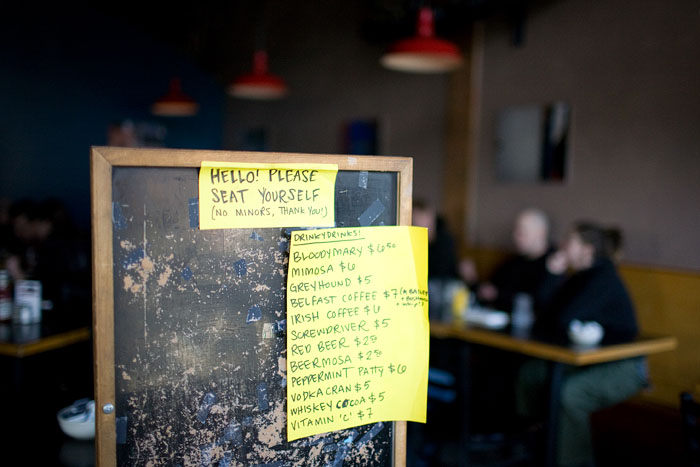 HELLO! PLEASE
SEAT YOURSELF
(NO MINORS, THANK YOU!)
DRINKYDRINKS!
BLOODYMARY $6.50
MIMOSA $6
GREYHOUND $5
BELFAST COFFEE $7
IRISH COFFEE $6
SCREWDRIVER $5
RED BEER $2.50
BEERMOSA $2.50
PEPPERMINT PATTY $6
VODKACRAN $5
WHISKEY COCOA $5
VITAMIN 'C' $7